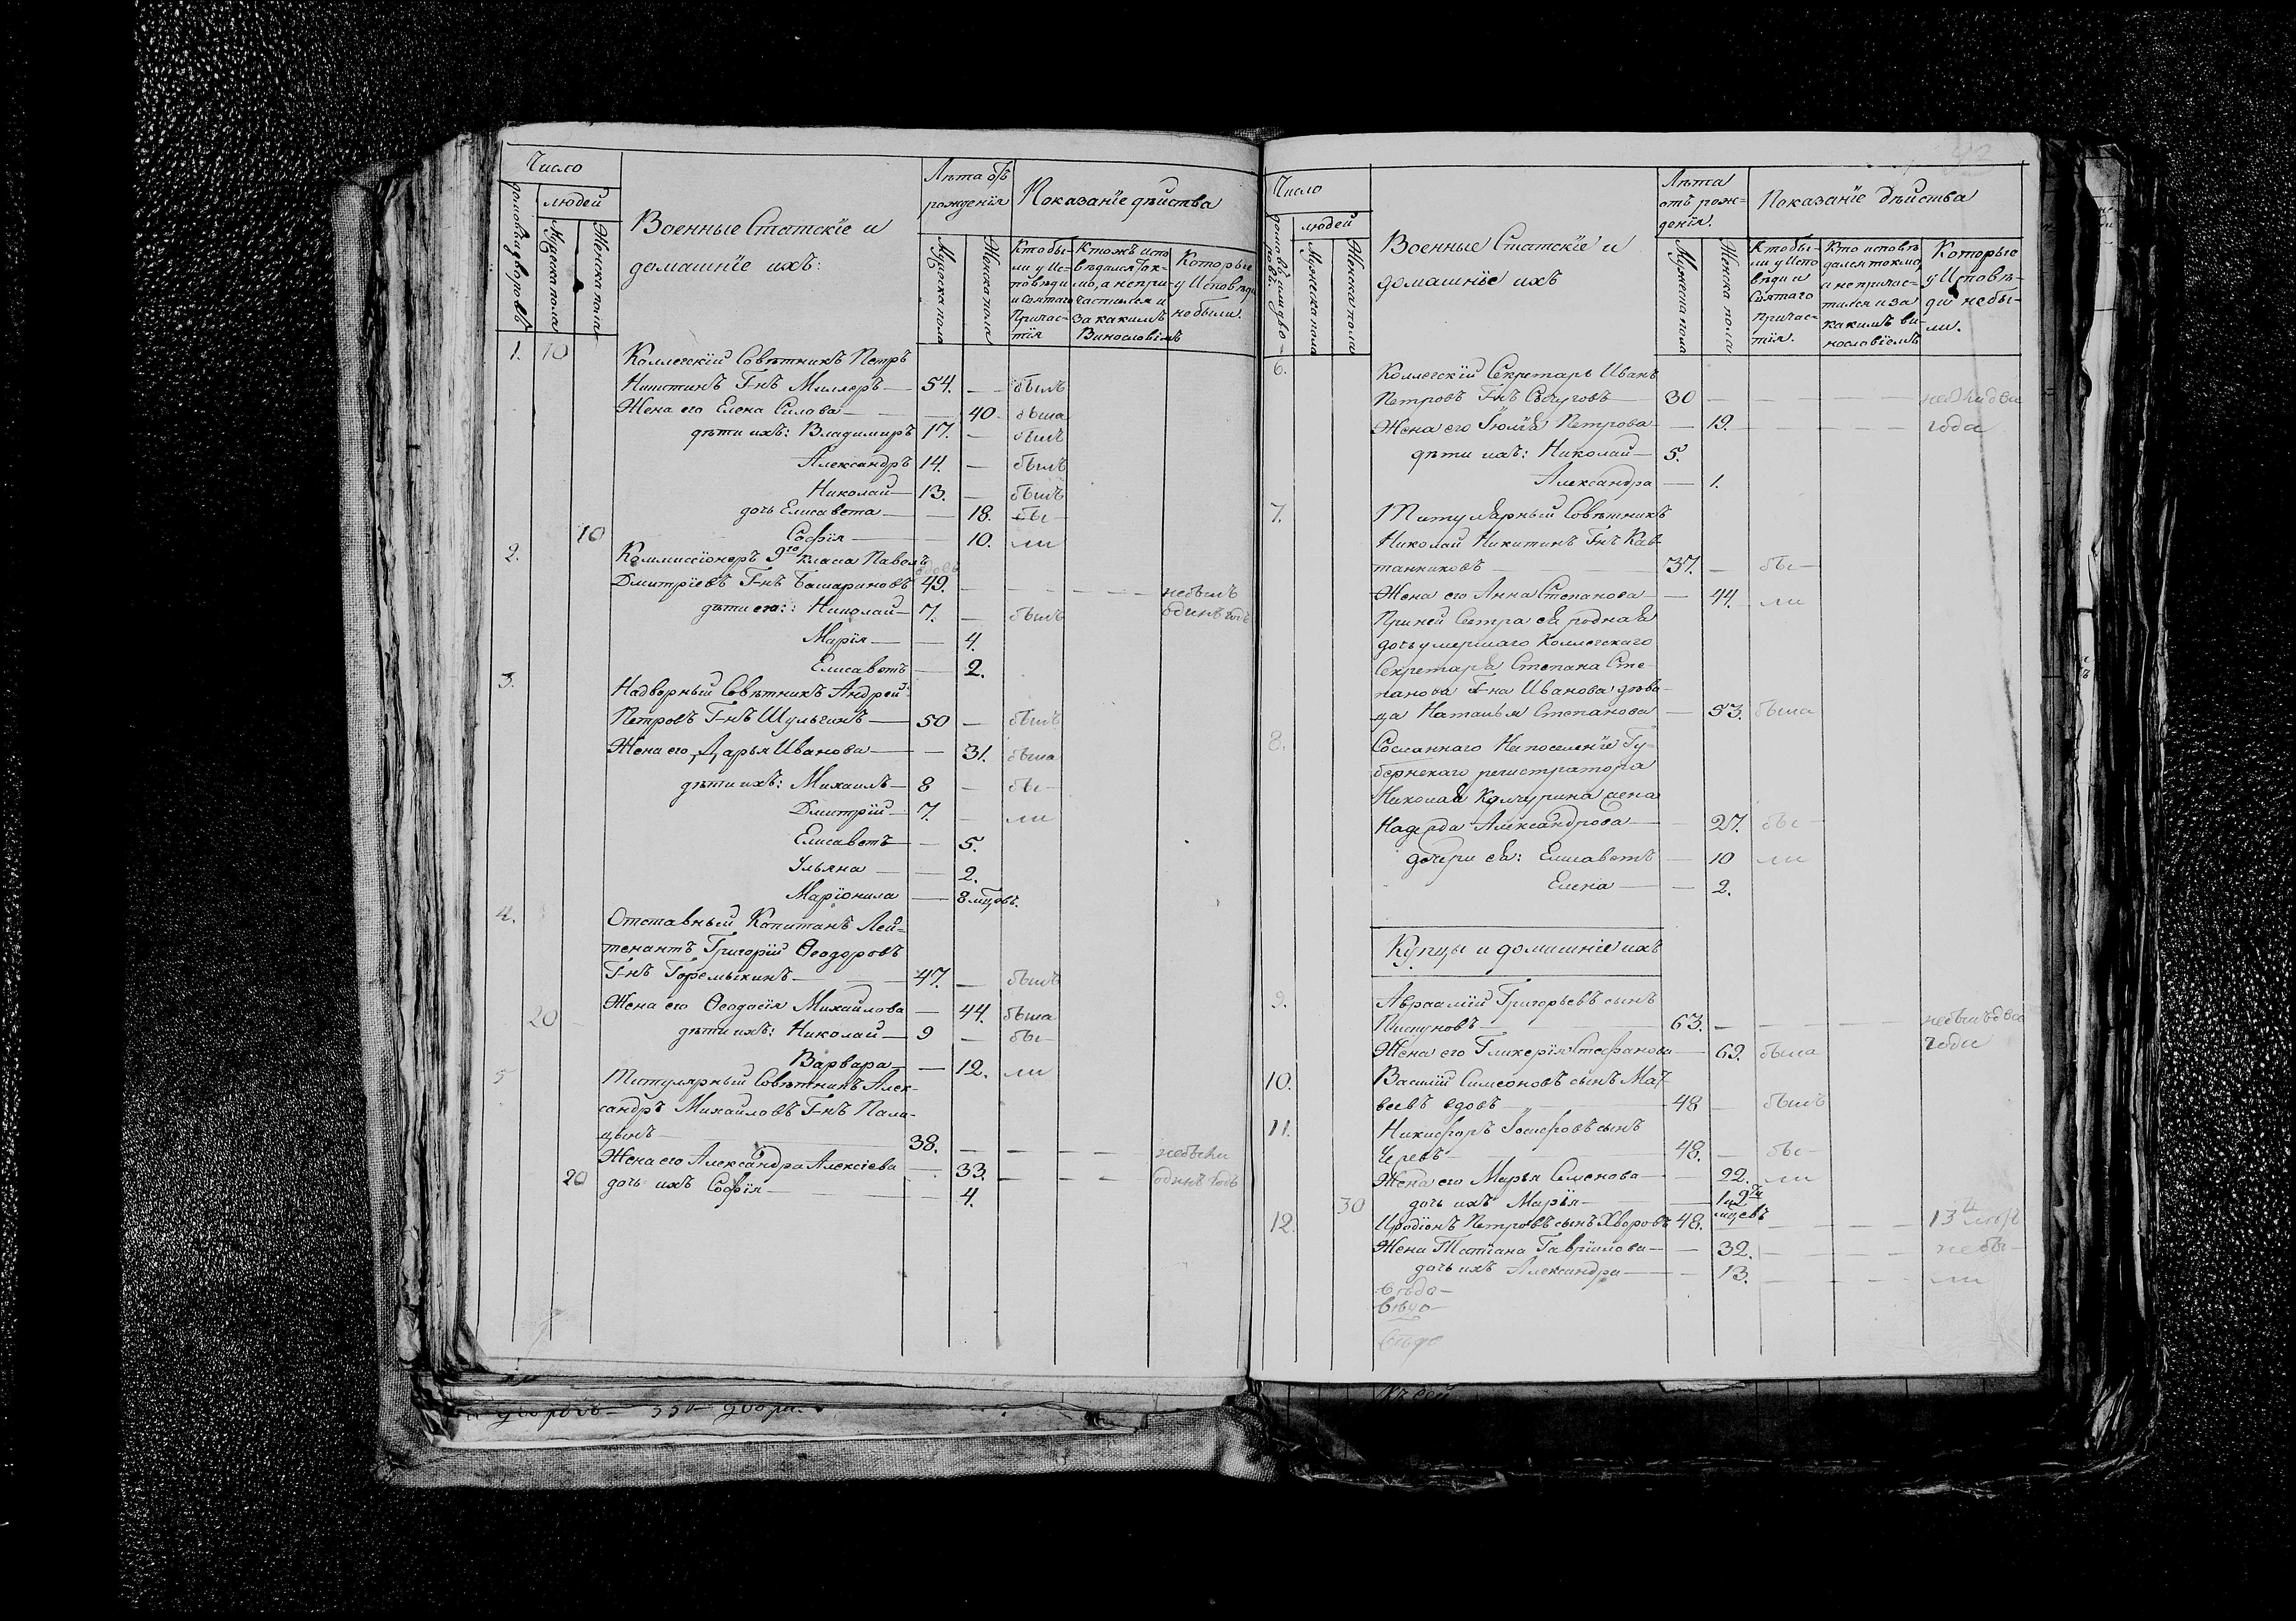 Число
людей
домовъ и дворовъ
Мужеска пола
Женска пола
Военные Статскіе и
домашніе ихъ:
Лѣта отъ
рожденія
Мужеска пола
Женска пола
Показаніе дѣйства
Кто бы-
ли у Ис-
повѣди
и святаго
Причас-
тія
Кто жъ испо
вѣдался ток-
мо, а непри-
частился и
за какимъ
Винословіемъ
Которые
у Исповѣди
не были.
1. 10 Коллегскій Совѣтникъ Петръ
Никитинъ Г-нъ Миллеръ — 54. — былъ
Жена его Елена Силова — — 40. была
дѣти ихъ: Владимиръ 17. — былъ
Александръ 14. — былъ
Николай — 13. — былъ
дочь Елисавета — — 18. бы-
10 Софія — — 10. ли
2. Коммиссіонеръ 9го класа Павелъ
Дмитріевъ Г-нъ Башариновъ вдовъ 49. — — — — небылъ
дѣти его: Николай — 7. — былъ одинъ годъ
Марія — — 4.
Елисаветъ — 2.
3. Надворный Совѣтникъ Андрей
Петровъ Г-нъ Шульгинъ — 50 — былъ
Жена его Дарья Иванова — — 31. была
дѣти ихъ: Михаилъ — 8 — бы-
Дмитрій — 7. — ли
Елисаветъ — — 5.
Ульяна — — 2.
Маріонила — 8 мцовъ.
4. Отставный Капитанъ Лей-
тенантъ Григорій Ѳеодоровъ
Г-нъ Горемыкинъ — 47. — былъ
20 Жена его Ѳеодосія Михайлова — 44. была
дѣти ихъ: Николай — 9 — бы-
Варвара — — 12. ли
5 Титулярный Совѣтникъ Алек-
сандръ Михайловъ Г-нъ Пали-
цынъ — 38. — — — — небыли
Жена его Александра Алексіева — 33. — — — одинъ годъ
20 дочь ихъ Софія — — 4.
Число
людей
домовъ и дво-
ровъ.
Мужеска пола
Женска пола
Военные Статскіе и
домашніе ихъ
Лѣта
отъ рож-
денія.
Мужеска пола
Женска пола
Показаніе дѣйства
Кто бы-
ли у Испо
вѣди и
Святаго
Причас-
тія.
Кто исповѣ
дался токмо,
а непричас-
тился и за
какимъ ви-
нословіемъ
Которые
у Исповѣ-
ди небы-
ли.
6. Коллегскій Секретарь Иванъ
Петровъ Г-нъ — 30 — — — — небыли два
Жена его Іюлія Петрова — 19. — — — года
дѣти ихъ: Николай — 5.
Александра — 1.
7. Титулярный Совѣтникъ
Николай Никитинъ Г-нъ Кав-
танниковъ — 37. — бы-
Жена его Анна Степанова — — 44. ли
При ней Сестра ея родная
дочь умершаго Коллегскаго
Секретаря Степана Сте-
панова Г-на Иванова дѣви-
ца Наталья Степанова — 53. была
8. Сосланнаго На поселеніе Гу-
бернскаго регистратора
Николая Качурина жена
Надежда Александрова — — 27. бы-
дочери ея: Елисаветъ — 10 ли
Елена — — 2.
Купцы и домашніе ихъ
9. Авраамій Григорьевъ сынъ
Пискуновъ — 63. — — — небылъ два
Жена его Гликерія Стефанова — 69. была года
10. Василій Симеоновъ сынъ Мат-
веевъ вдовъ — 48 — былъ
11. Никифоръ Іосифовъ сынъ
Черевъ — 48. — бы-
Жена его Марья Семенова — — 22. ли
30 дочь ихъ Марья — — 1 и 9ти
мцевъ
12. Иродіонъ Петровъ сынъ Хворовъ 48. — — — 13 лѣтъ
Жена Татіана Гавріилова — — 32. — — — небы-
дочь ихъ Александра — — 13. — — — ли